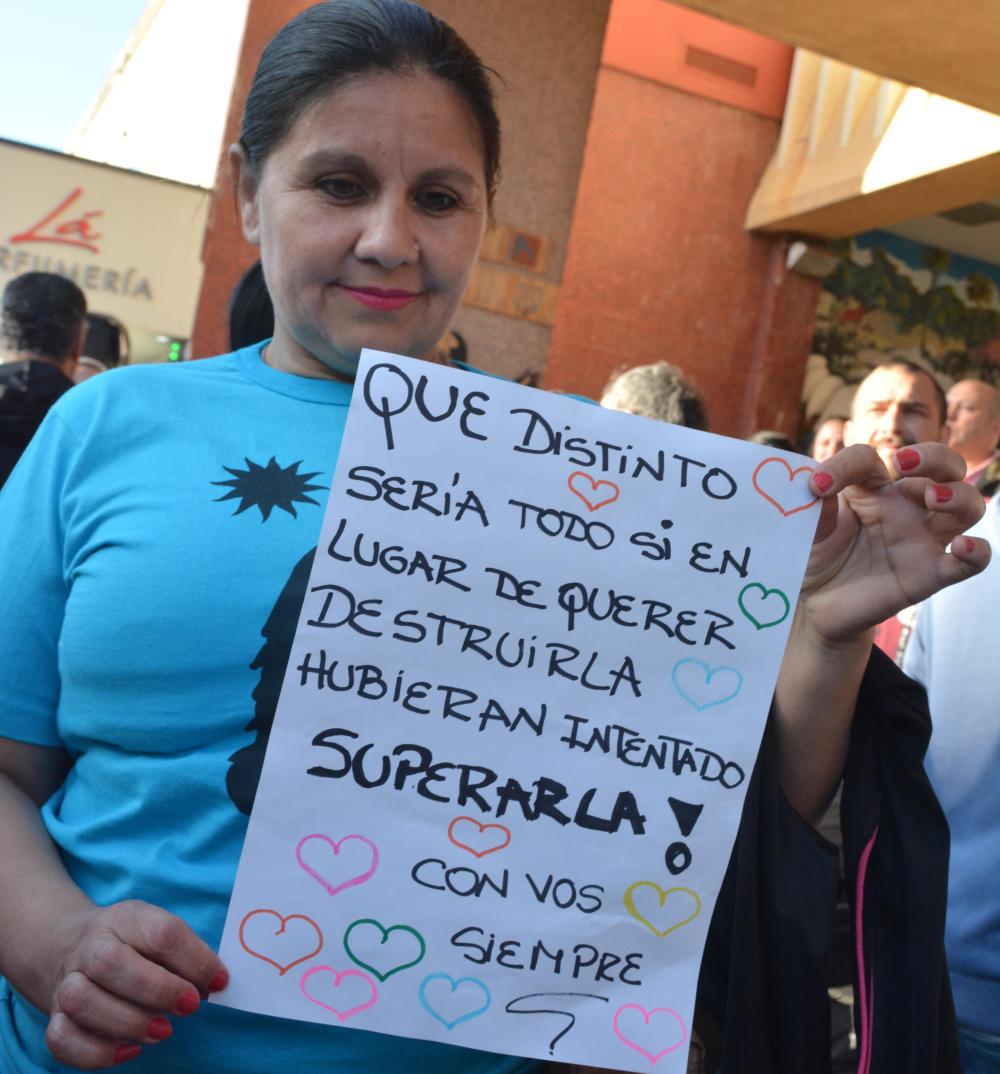 Lá
RFUMERÍA
QUE DISTINTO
SERÍA TODO SI EN
LUGAR DE QUERER
DESTRUIRLA
HUBIERAN INTENTADO
SUPERARLA!
CON VOS
SIEMPRE